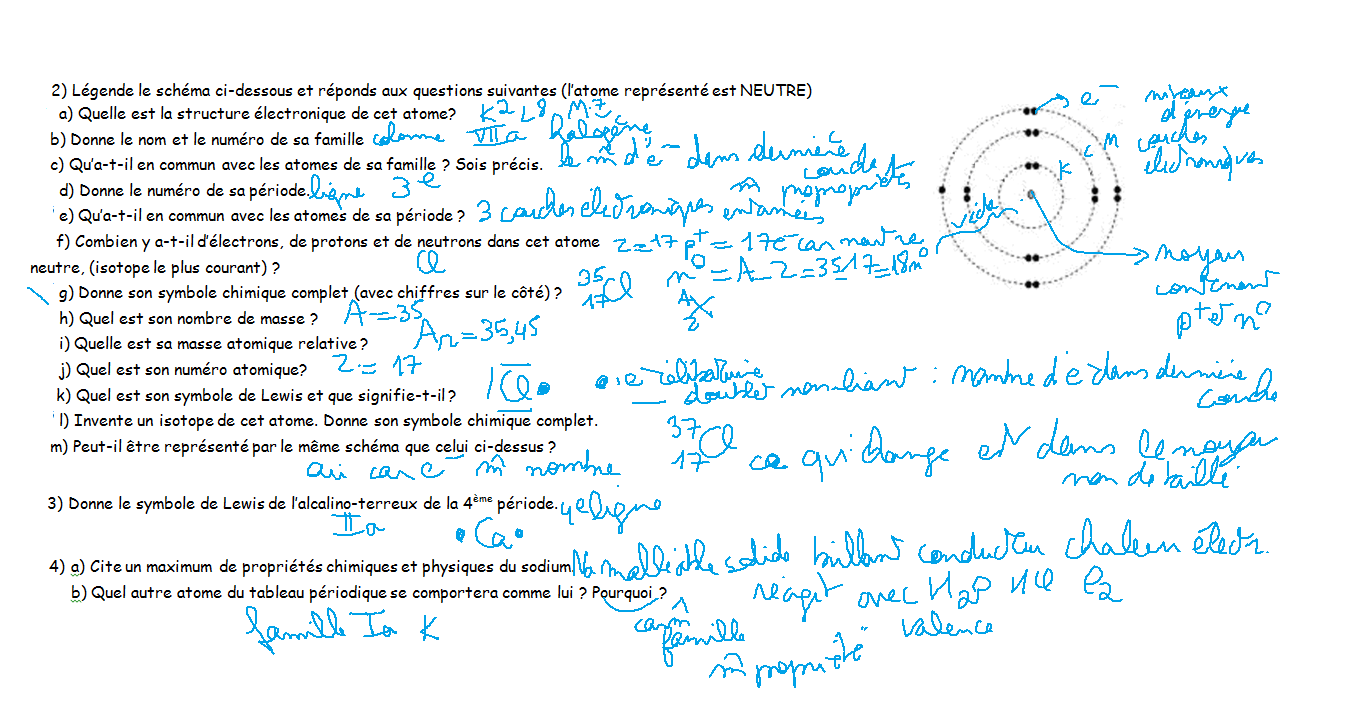 2) Légende le schéma ci-dessous et réponds aux questions suivantes (l'atome représenté est NEUTRE)
a) Quelle est la structure électronique de cet atome? K2 L8 M7
b) Donne le nom et le numéro de sa famille colonne VIIa halogène
c) Qu'a-t-il en commun avec les atomes de sa famille ? Sois précis. le m̂ d'e⁻ dans dernière couche
m̂ propropriétés
d) Donne le numéro de sa période. ligne 3e
e) Qu'a-t-il en commun avec les atomes de sa période ? 3 couches électroniques entamées
f) Combien y a-t-il d'électrons, de protons et de neutrons dans cet atome Z=17 p⁺ = 17e⁻ car neutre
neutre, (isotope le plus courant) ? Cl n⁰ = A-Z = 35-17 = 18n⁰
g) Donne son symbole chimique complet (avec chiffres sur le côté) ? 35 17 Cl A Z X
h) Quel est son nombre de masse ? A=35
i) Quelle est sa masse atomique relative ? Ar=35,45
j) Quel est son numéro atomique? Z = 17
k) Quel est son symbole de Lewis et que signifie-t-il ? Cl • • : e⁻ célibataire
doublet non-liant : nombre d'e⁻ dans dernière couche
l) Invente un isotope de cet atome. Donne son symbole chimique complet. 37 17 Cl
m) Peut-il être représenté par le même schéma que celui ci-dessus ? ce qui change est dans le noyau
non détaillé
oui car e⁻ m̂ nombre
3) Donne le symbole de Lewis de l'alcalino-terreux de la 4ème période. 4e ligne
IIa •Ca•
4) a) Cite un maximum de propriétés chimiques et physiques du sodium Na malléable solide brillant conducteur chaleur électr.
réagit avec H2O HCl
b) Quel autre atome du tableau périodique se comportera comme lui ? Pourquoi ?
famille Ia K
car m̂ famille
m̂ propriété
valence
e⁻
niveaux
d'énergie
couches
électroniques
K L M
vide
noyau
contenant
p⁺ et n⁰